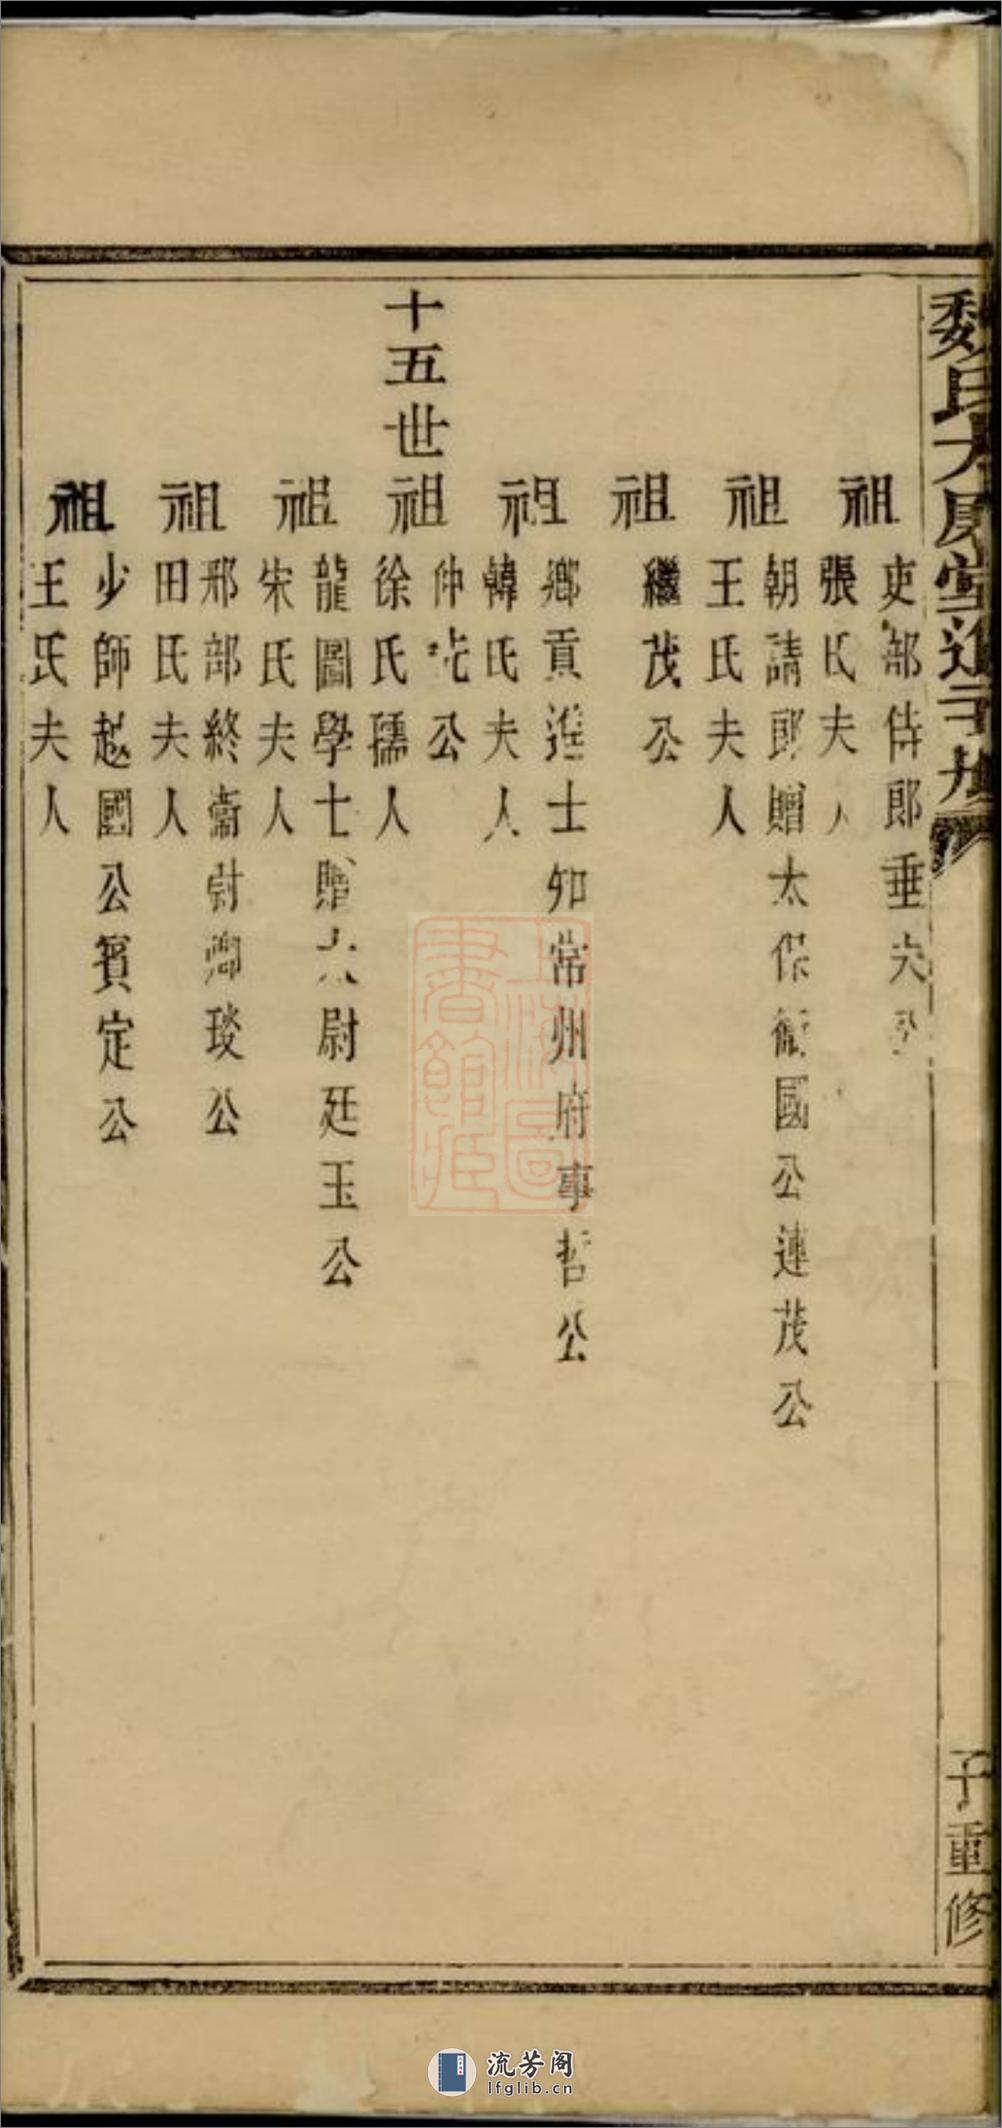 魏氏
子重修
祖
吏部侍郎垂
張氏夫人
祖
朝請郎贈太保衛國公連茂公
王氏夫人
祖
繼茂公
祖
鄉貢進士知常州府事哲公
韓氏夫人
十五世
祖
仲公
徐氏孺人
祖
龍圖學士贈太尉廷玉公
宋氏夫人
祖
邢部終衛尉卿琰公
田氏夫人
祖
少師越國公賓定公
王氏夫人
上海圖書館藏
流芳阁
lfglib.cn